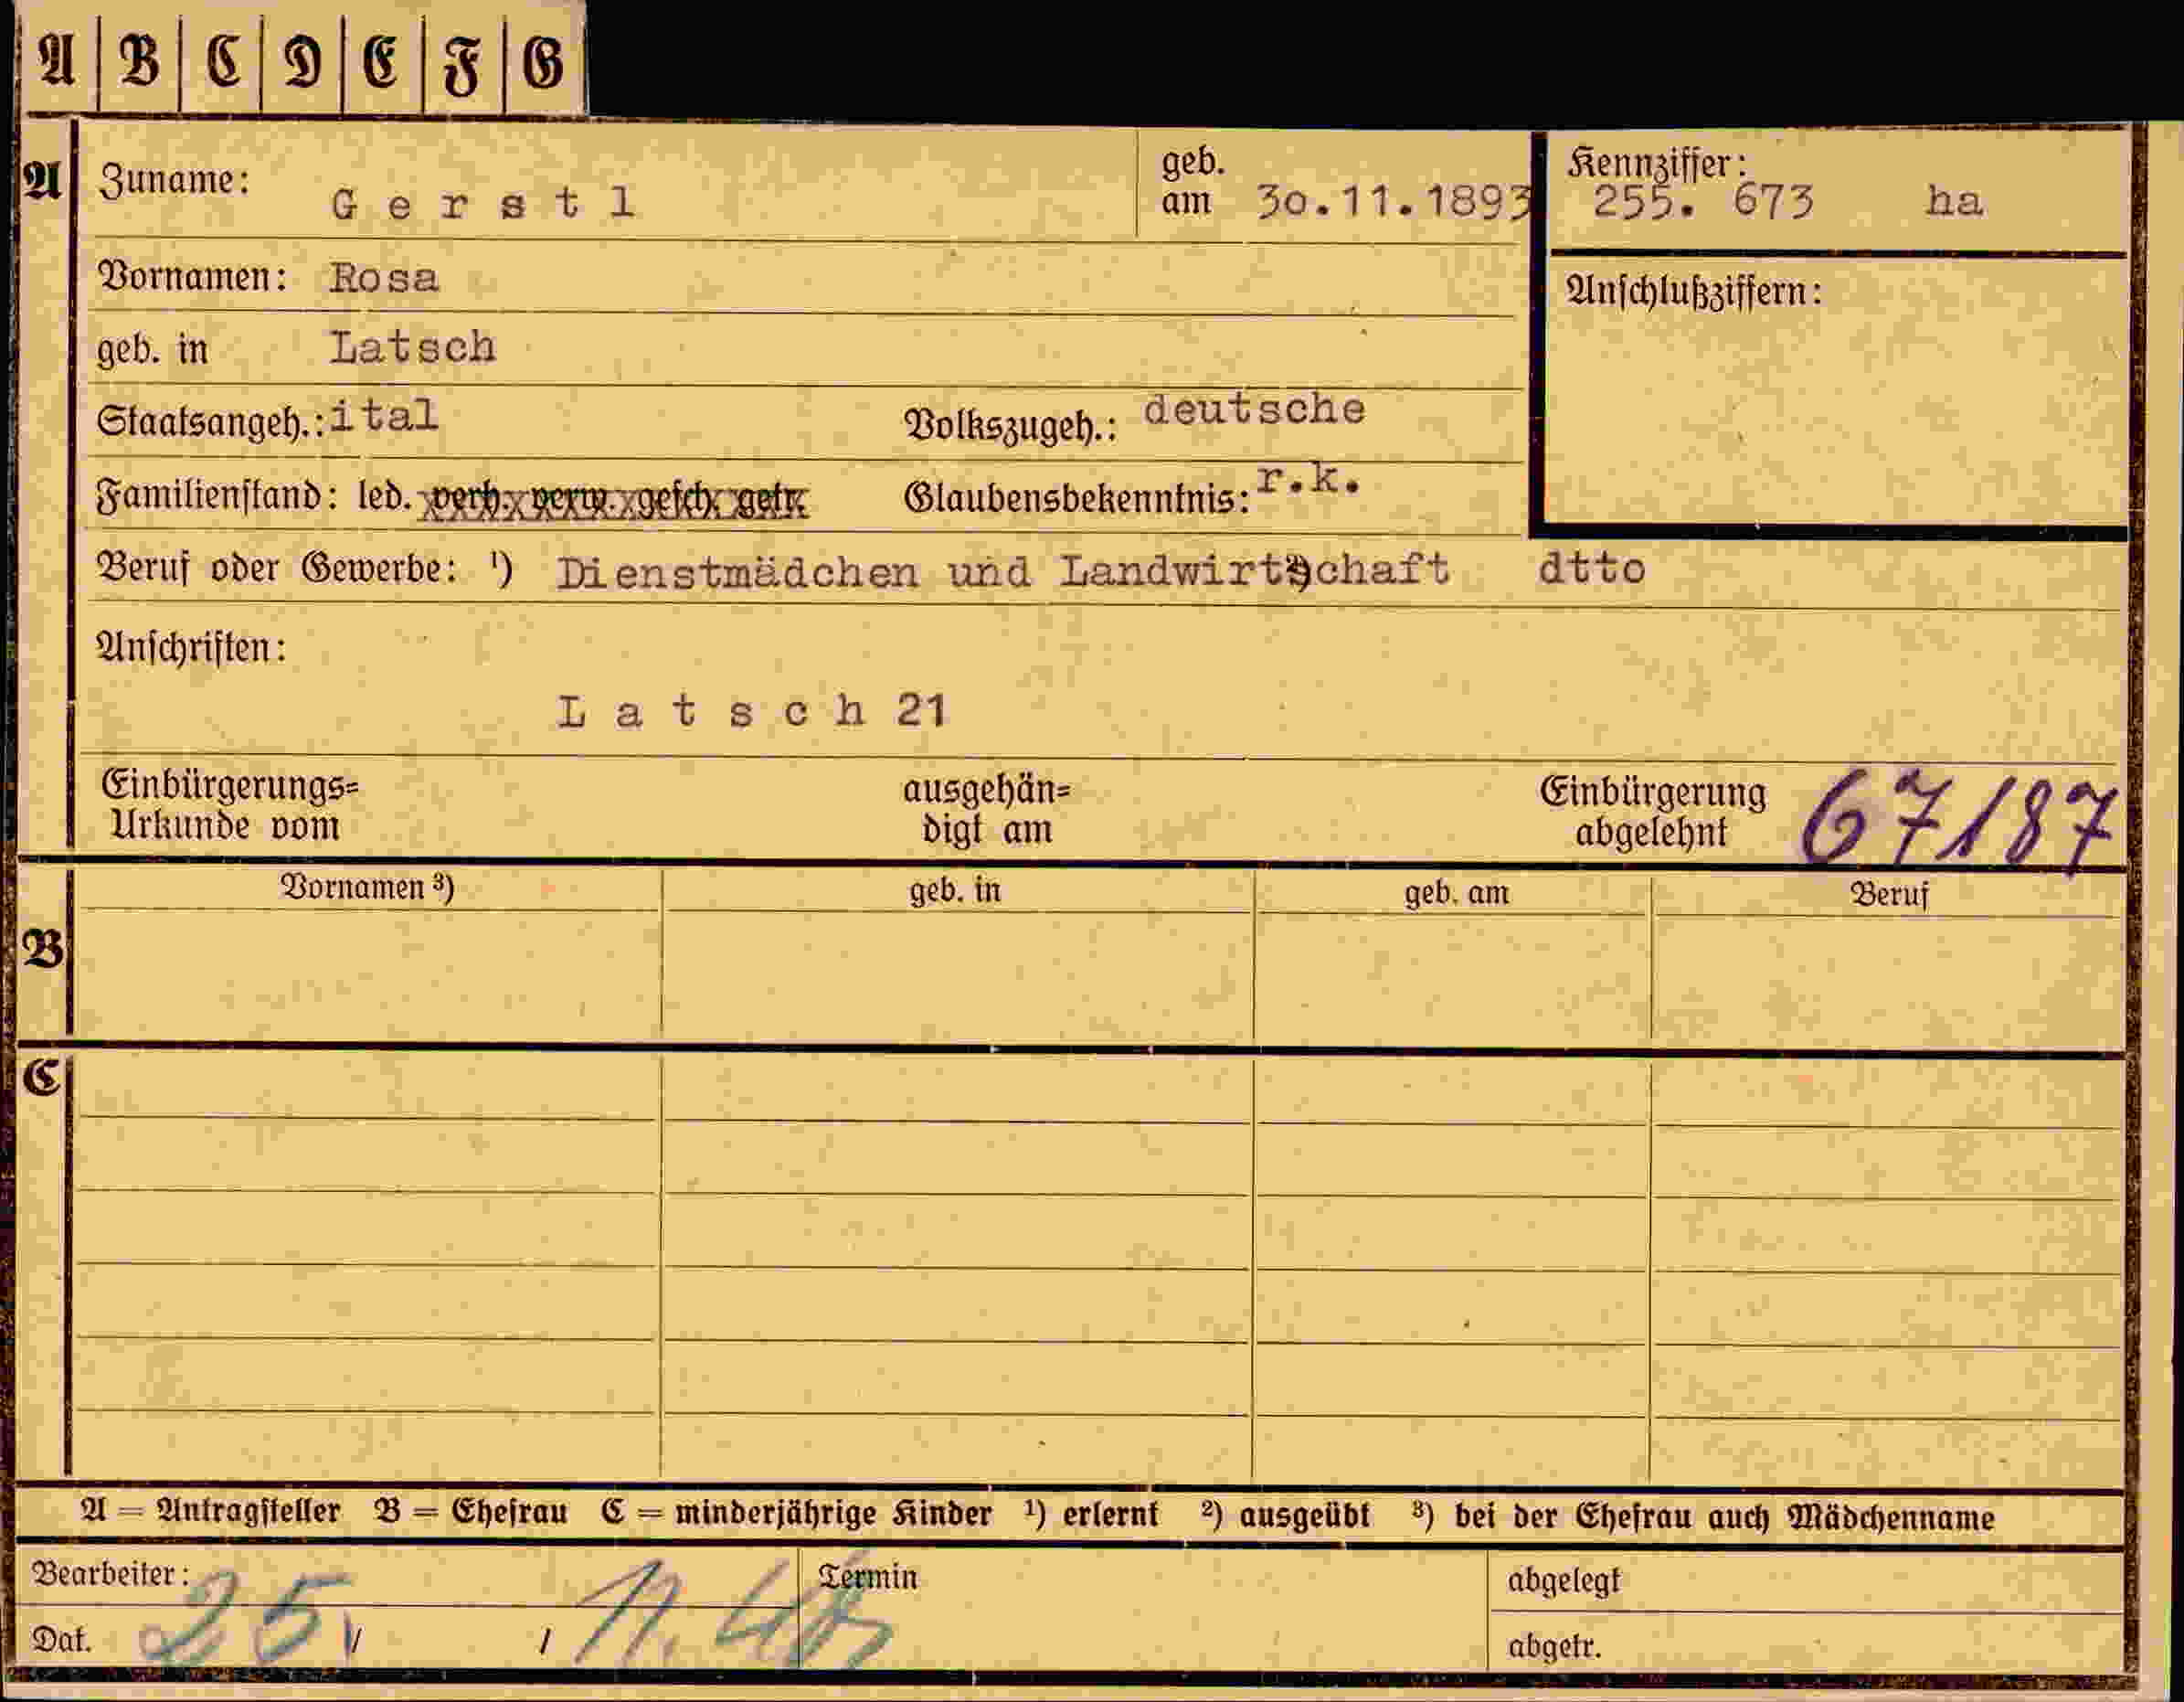 A B C D E F G
A Zuname: Gerstl geb. am 30.11.1893 Kennziffer: 255. 673 ha
Vornamen: Rosa
Anschlußziffern:
geb. in Latsch
Staatsangeh.: ital Volkszugeh.: deutsche
Familienstand: led. verh. verw. gesch. getr. Glaubensbekenntnis: r.k.
Beruf oder Gewerbe: ¹) Dienstmädchen und Landwirtschaft ²) dtto
Anschriften:
Latsch 21
Einbürgerungs= Urkunde vom ausgehän= digt am Einbürgerung abgelehnt 67187
B Vornamen ³) geb. in geb. am Beruf
C
A = Antragsteller B = Ehefrau C = minderjährige Kinder ¹) erlernt ²) ausgeübt ³) bei der Ehefrau auch Mädchenname
Bearbeiter: Termin abgelegt
Dat. 25. / / 11. abgetr.